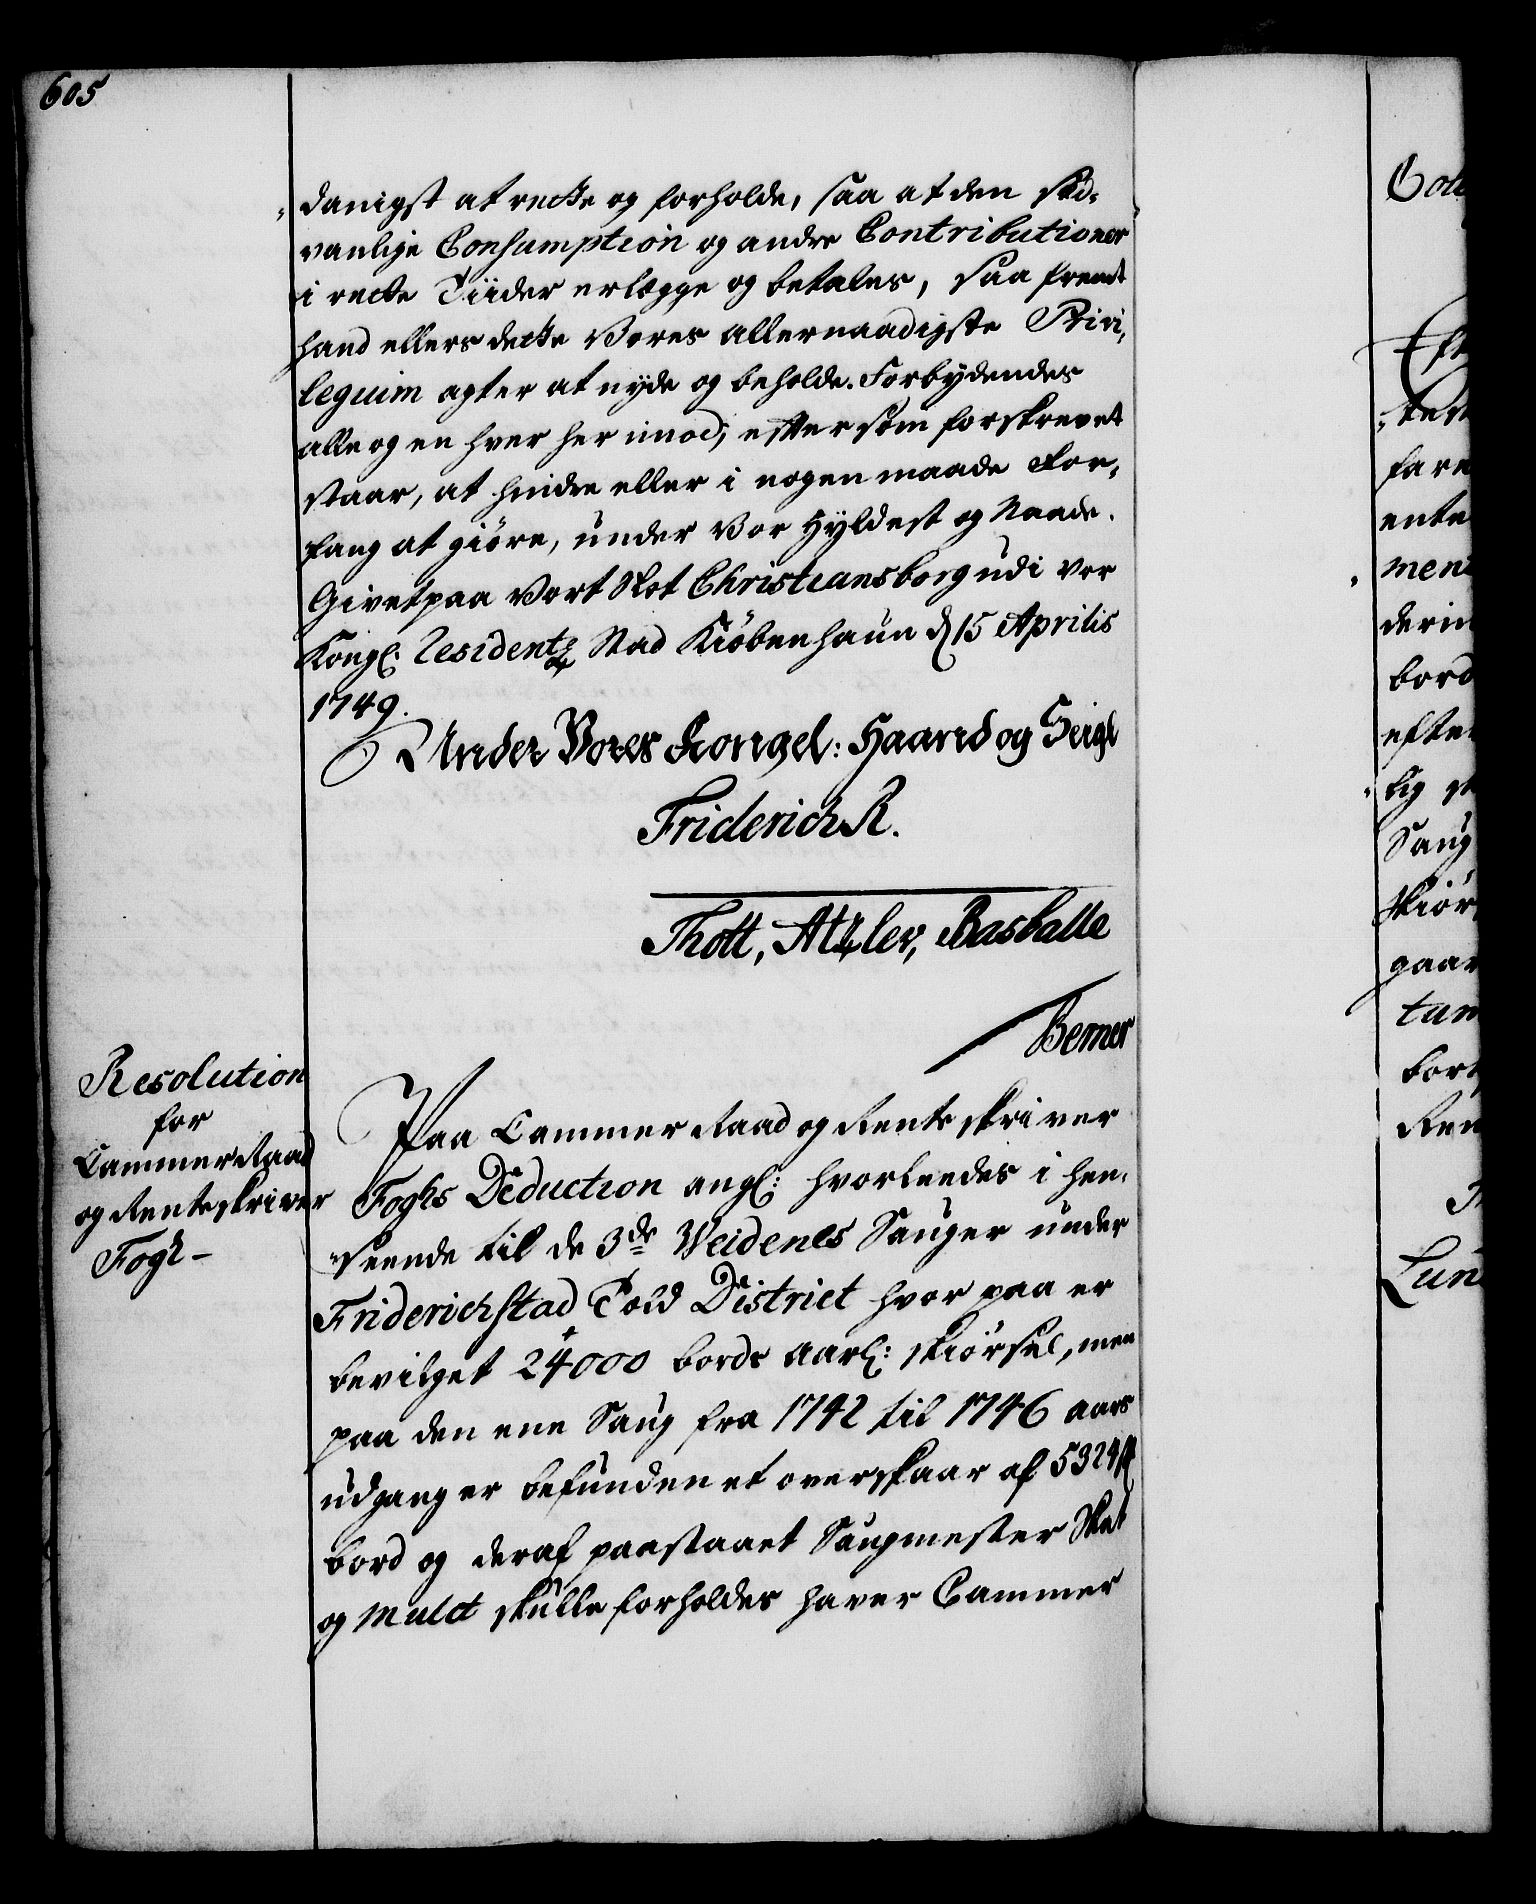 605
danigst at rette og forholde, saa at den sæd-
vanlige Consumption og andre Contributioner
i rette Tiider erlægge og betales, saa fremt
hand ellers dette Vores allernaadigste Privi-
leguim agter at nyde og beholde. Forbydendes
alle og en hver her imod, efftersom forskrevet
staar, at hindre eller i nogen maade For-
fang at giöre, under Vor Hyldest og Naade.
Givet paa Vort Slot Christiansborg udi vor
Kongl: Residentz Stad Kiöbenhaun d 15 Aprilis
1749.
Under Vores Kongel: Haand og Seigl
Friderich R.
Thott, Atzlev, Basballe
Berner
Resolution
for
Cammer Raad
og Renteskriver
Fogh-
Paa Cammer Raad og Renteskriver
Foghs Deduction angl: hvorleedes i hen-
seende til de 3de Weidenes Sauger under
Friderichstad Told District hvor paa er
bevilget 24000 bords aarl: skiörsel, men
paa den ene Saug fra 1742 til 1746 aars
udgang er befunden et overskaar af 5324
bord og deraf paastaaet Saugmester Skat
og Mulct skulle forholdes haver Cammer